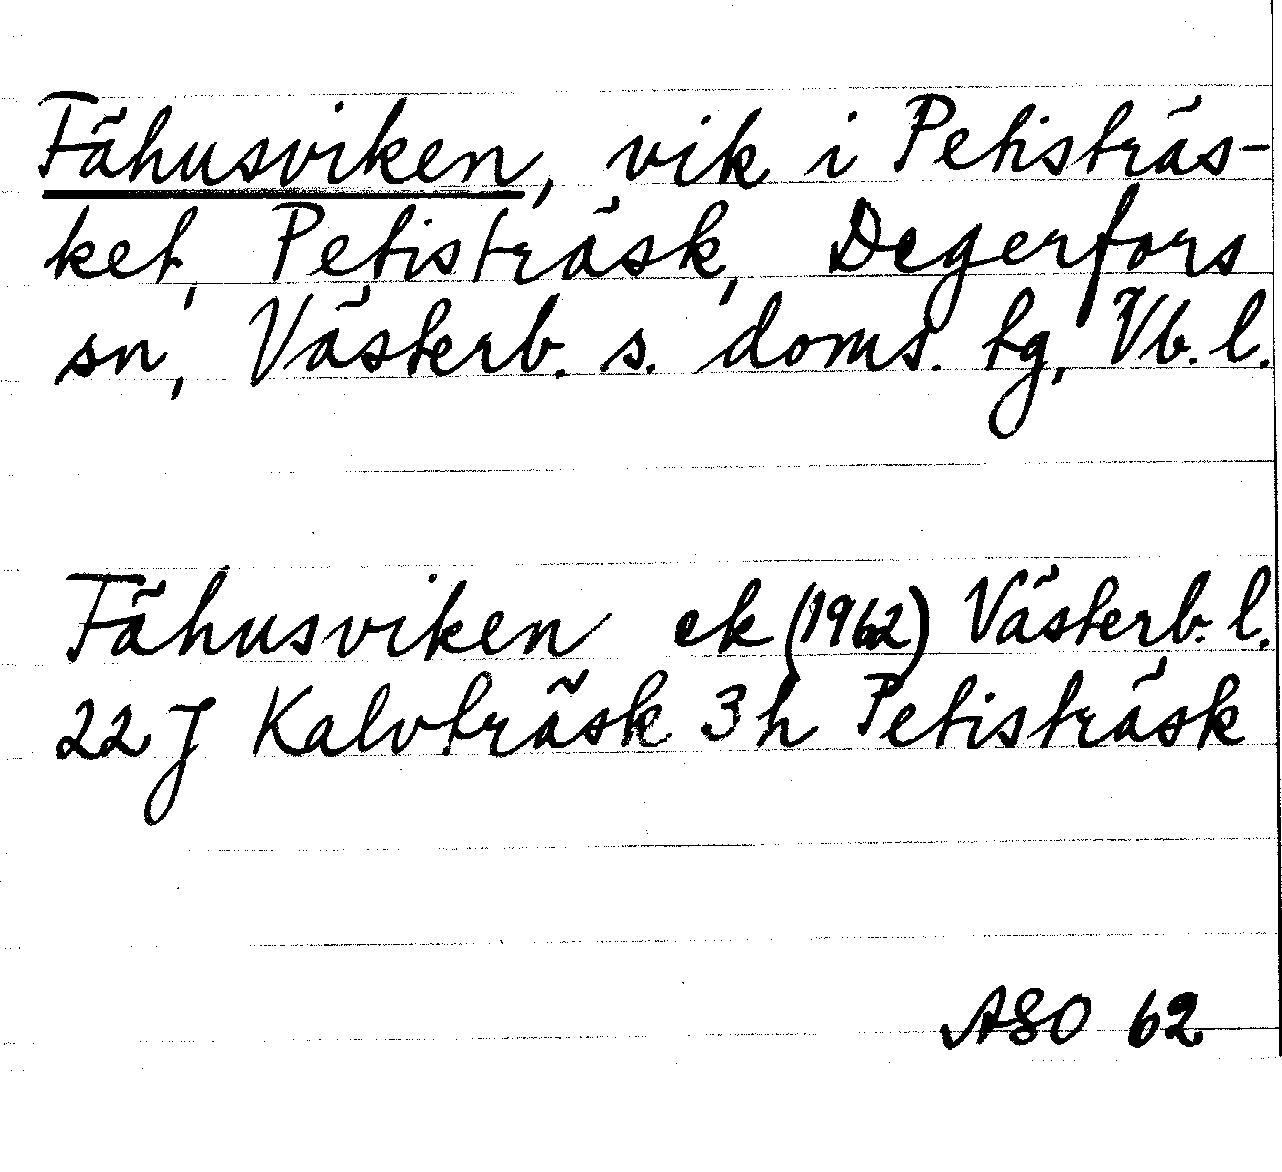 Fähusviken, vik i Petisträs-
ket, Petisträsk, Degerfors
sn, Västerb. s. doms. tg, Vb. l.
Fähusviken ek (1962) Västerb. l.
22 J Kalvträsk 3h Petisträsk
ASO 62